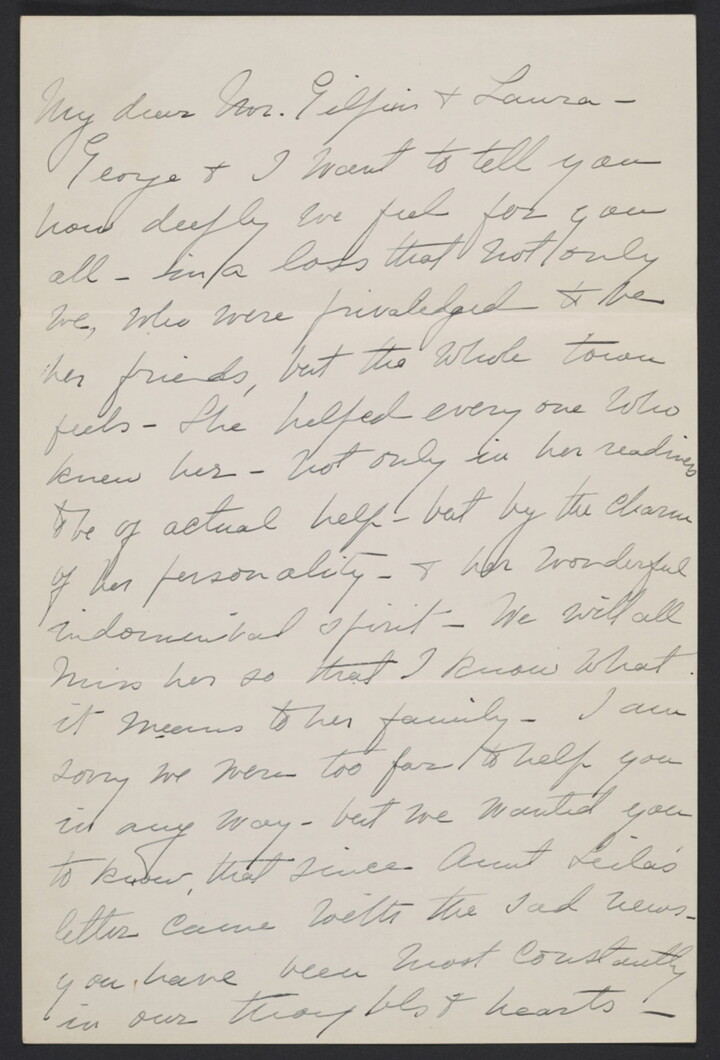 My dear Mr. Gilpin & Laura -
George & I want to tell you
how deeply we feel for you
all - in a loss that not only
we, who were privaledged to be
her friends, but the whole town
feels - She helped every one who
knew her - not only in her readiness
to be of actual help - but by the charm
of her personality - & her wonderful
indomenibal spirit - We will all
miss her so that I know what
it means to her family - I am
sorry we were too far to help you
in any way - but we wanted you
to know, that since Aunt Leila's
letter came with the sad news -
you have been most constantly
in our thoughts & hearts -